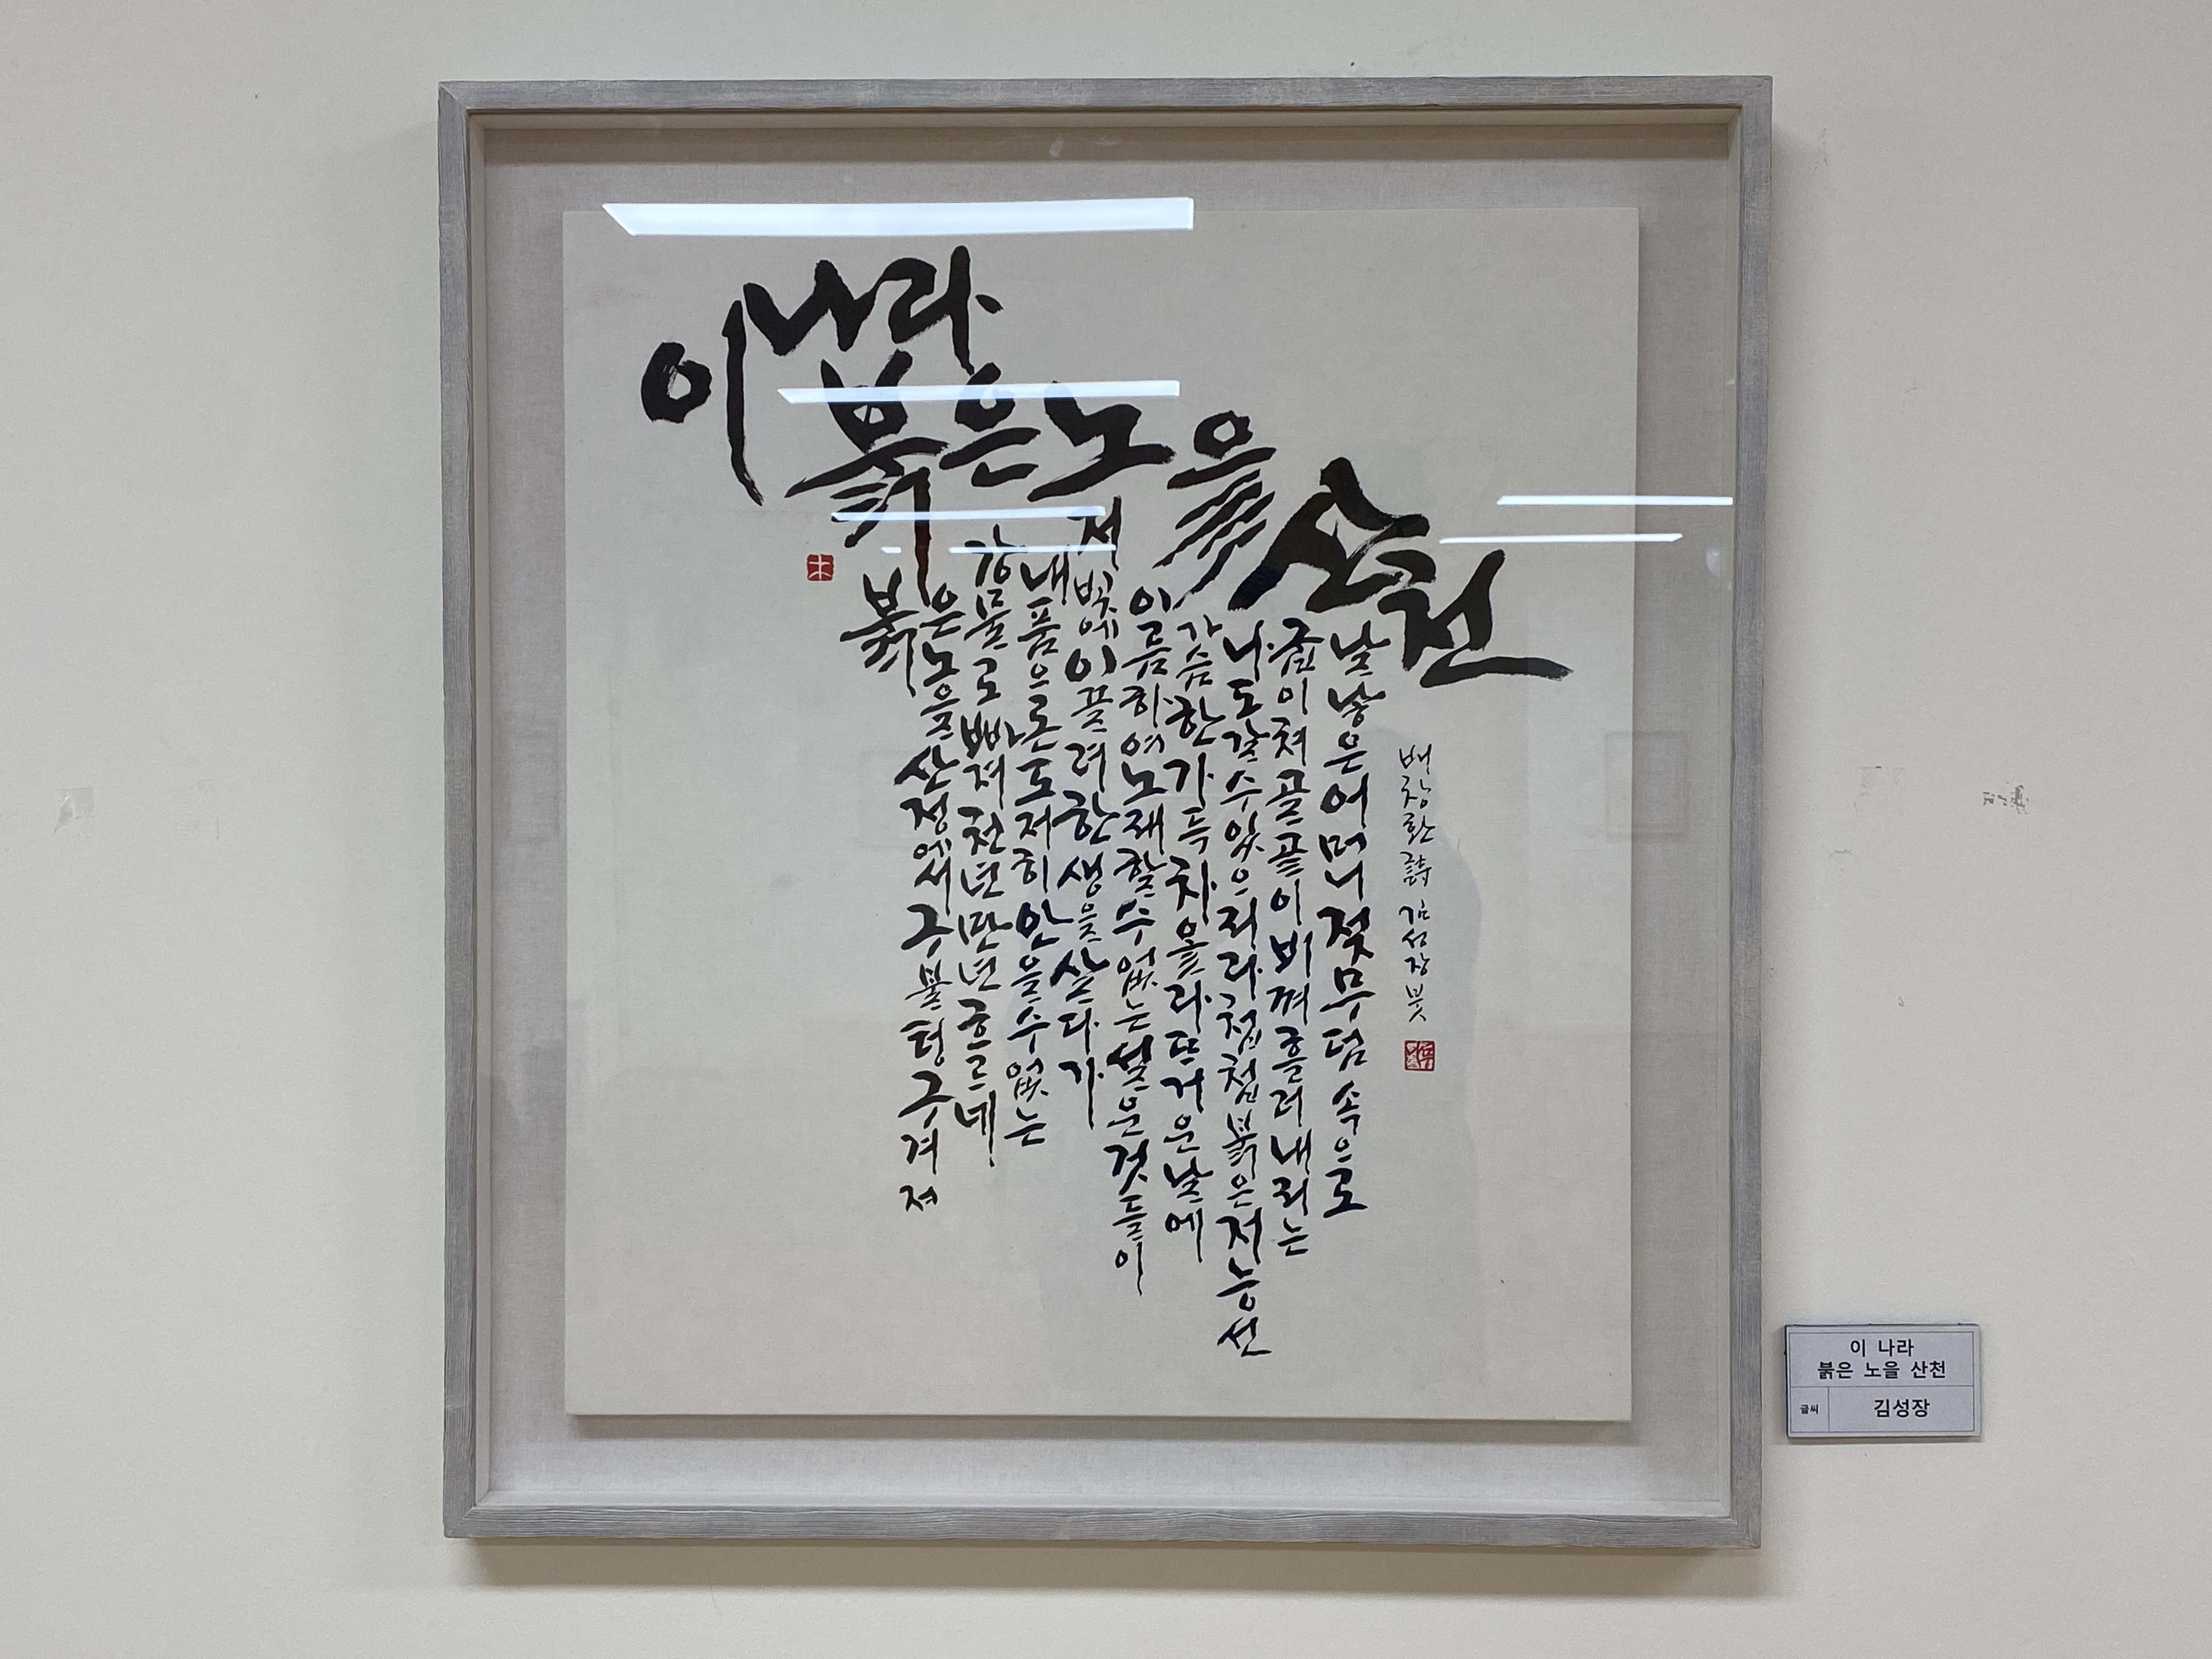 이 나라
붉은 노을 산천
붉은 노을 산정에서 구불텅 구겨져
강물로 빠져 천년만년 흐르네
내 품으론 도저히 안을 수 없는
저 빛에 이끌려 한 생을 살다가
이름하여 노래할 수 없는 설운 것들이
가슴 한가득 차올라 뜨거운 날에
나도 갈 수 있으리라 첩첩 붉은 저 능선
굽이쳐 골골이 비껴 흘러내리는
날 낳은 어머니 젖무덤 속으로
배창환 詩 김성장 붓
이 나라
붉은 노을 산천
글씨 김성장